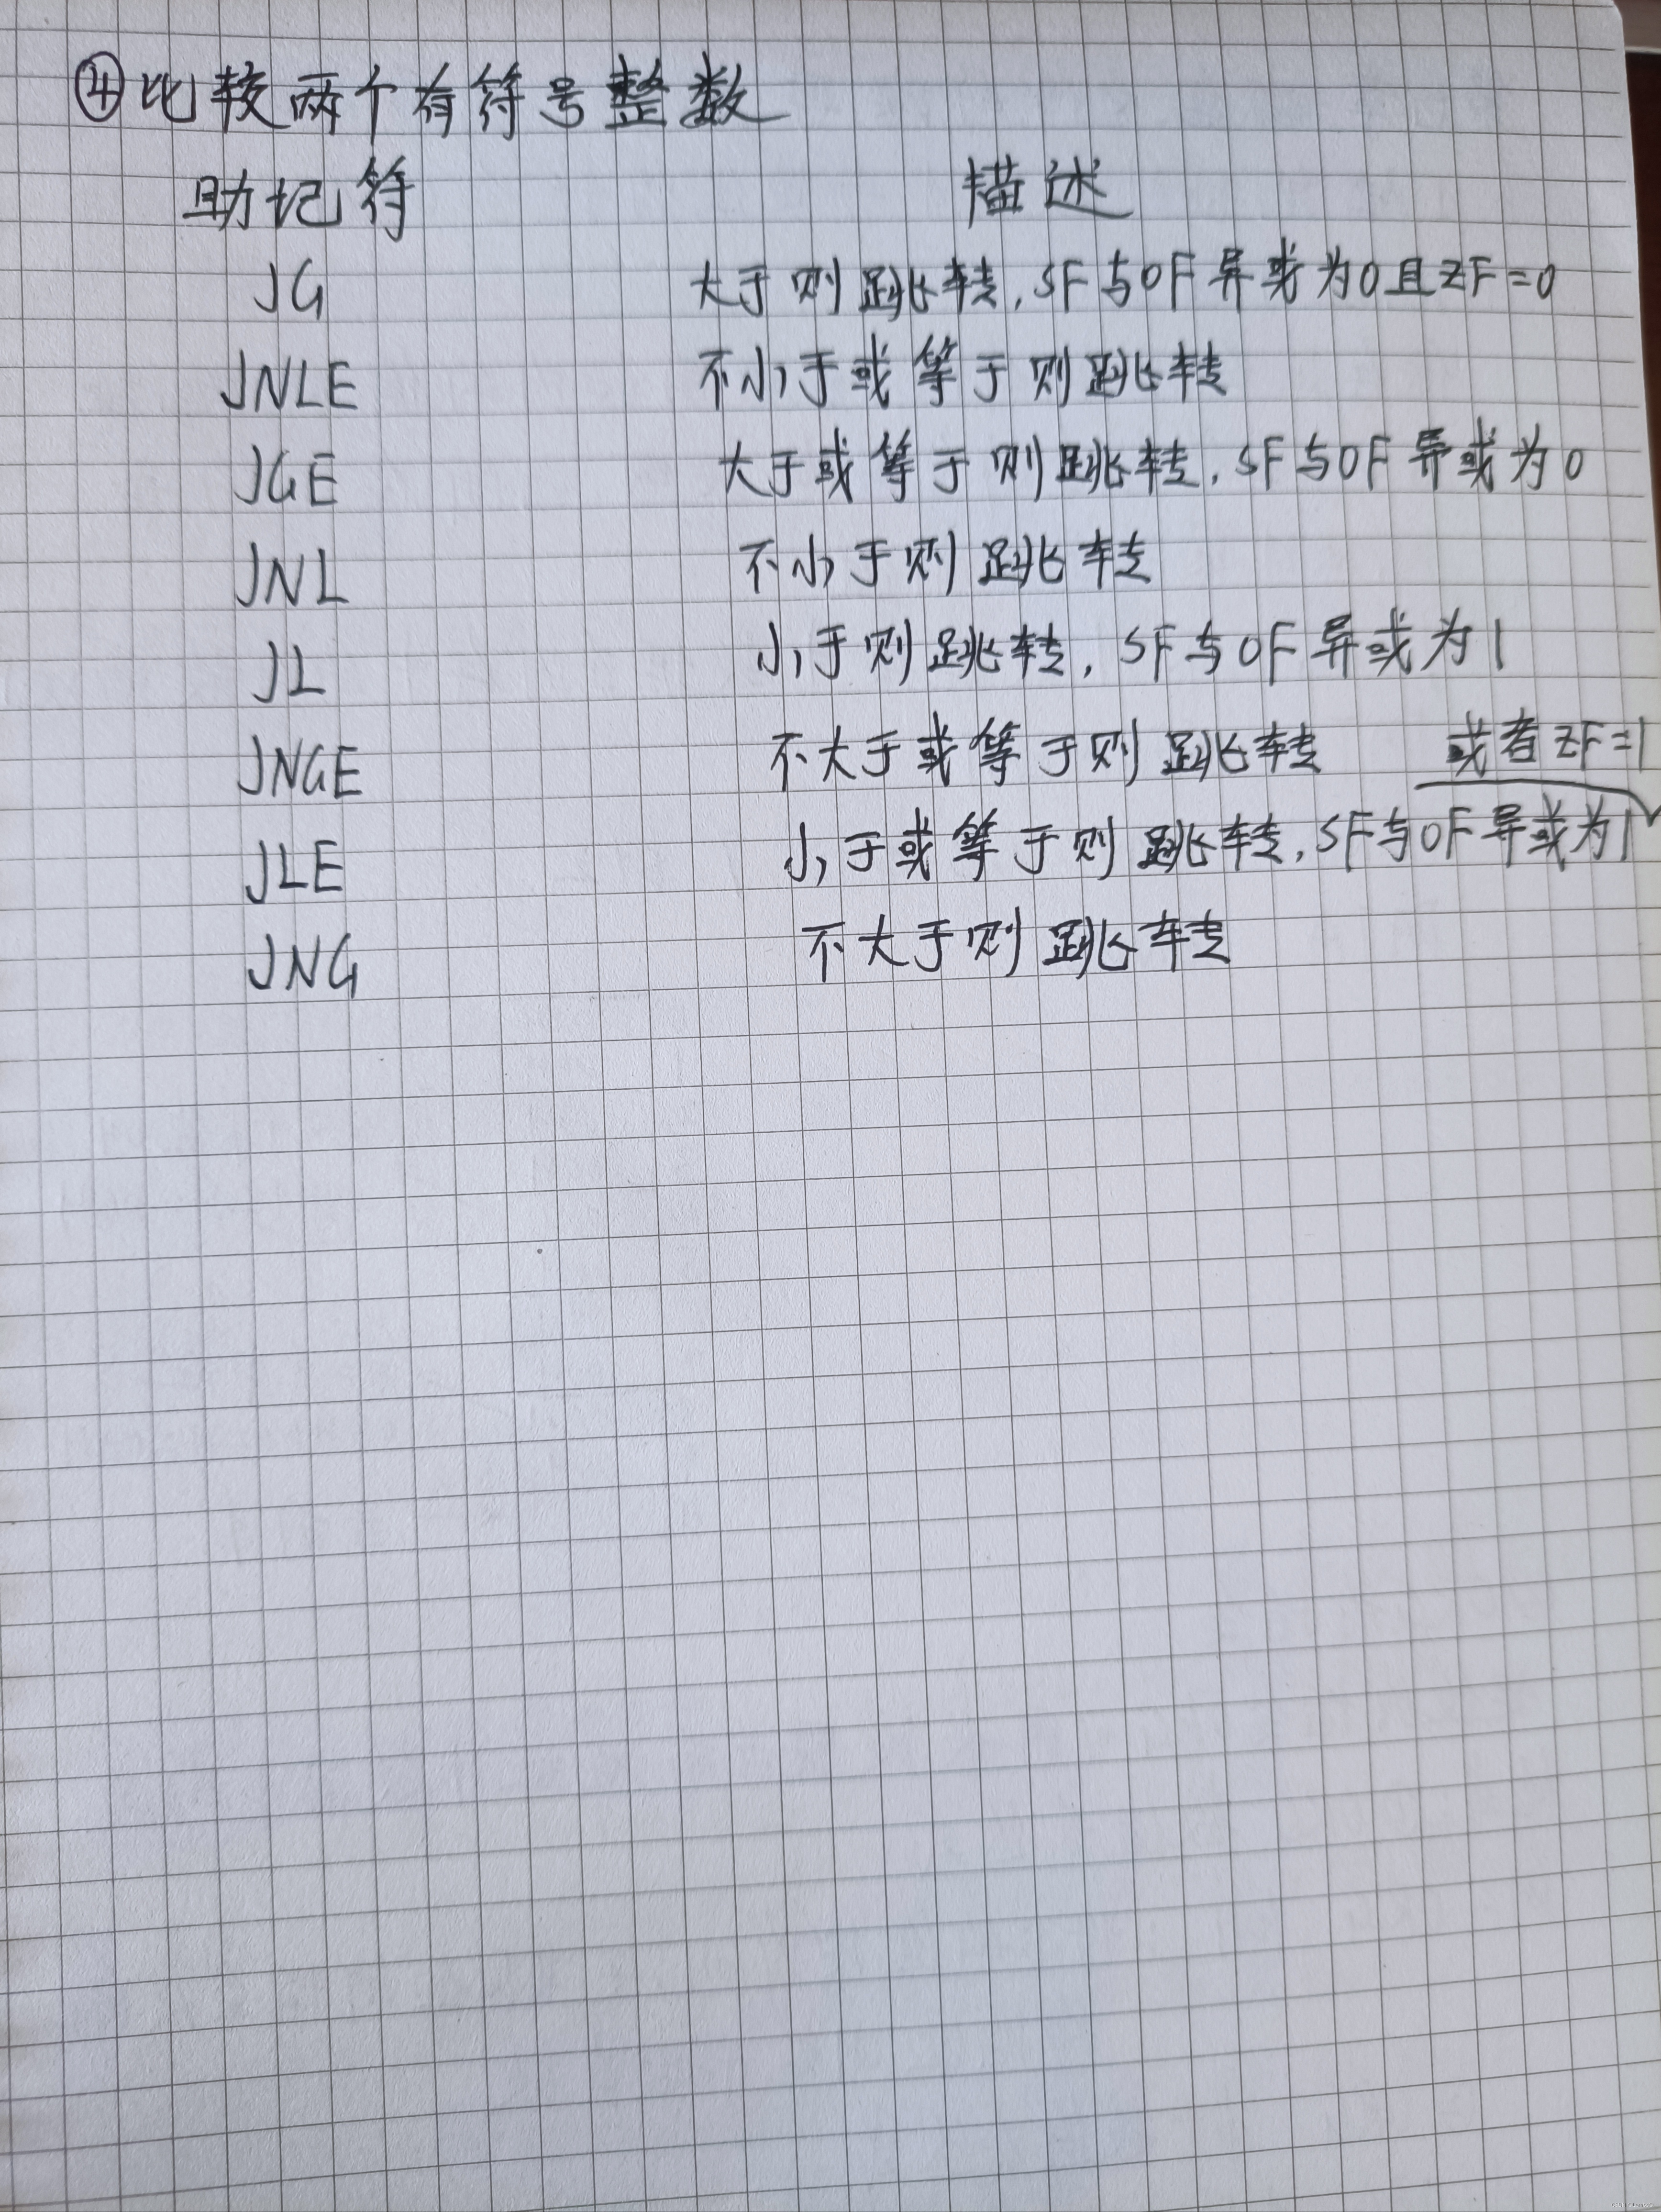 ④比较两个有符号整数
助记符 描述
JG 大于则跳转,SF与OF异或为0且ZF=0
JNLE 不小于或等于则跳转
JGE 大于或等于则跳转,SF与OF异或为0
JNL 不小于则跳转
JL 小于则跳转,SF与OF异或为1
JNGE 不大于或等于则跳转 或者ZF=1
JLE 小于或等于则跳转,SF与OF异或为1
JNG 不大于则跳转